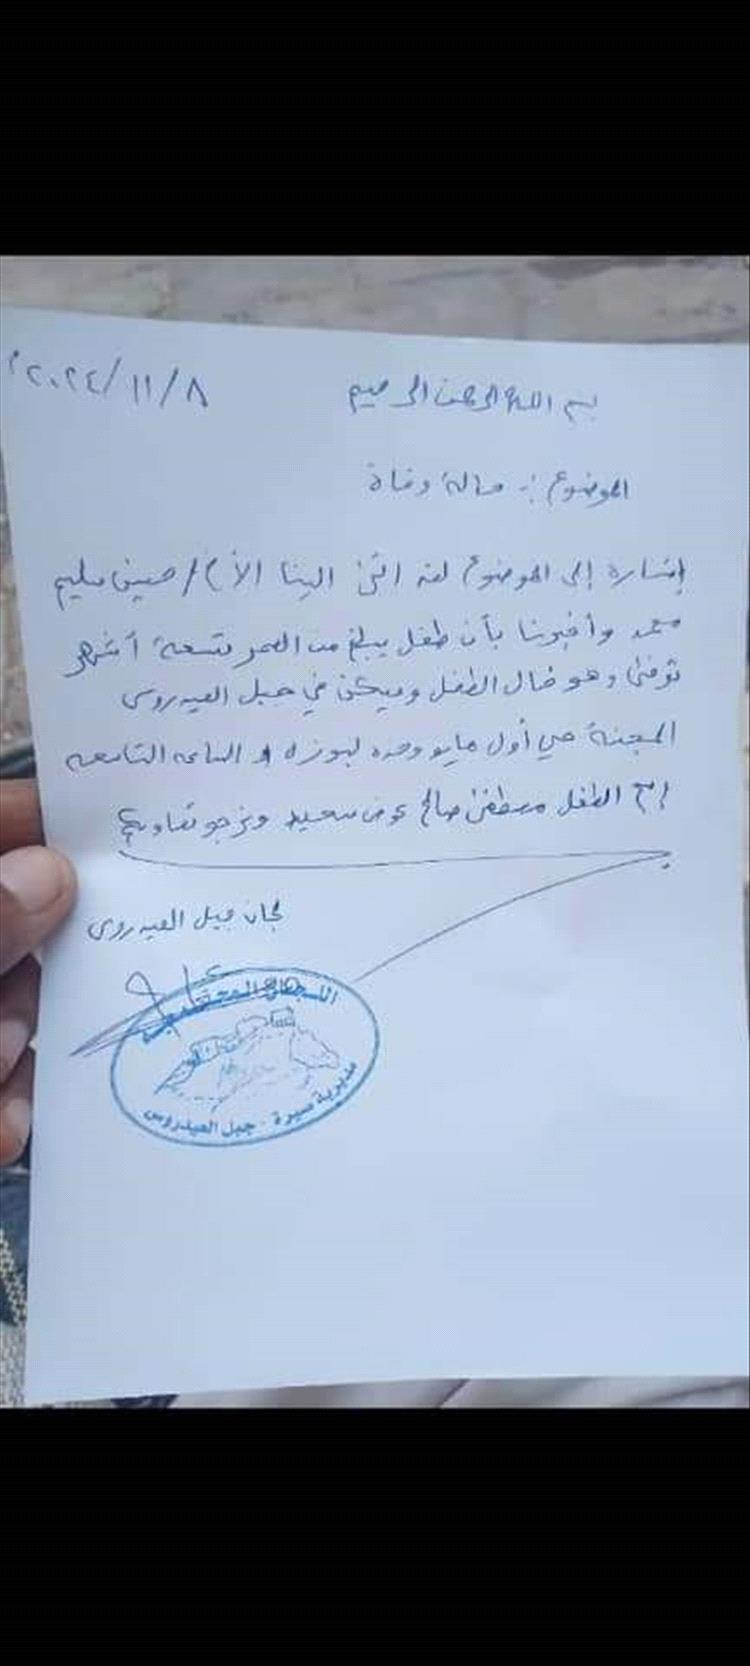 بسم الله الرحمن الرحيم
٢٠٢٤/١١/٨م
الموضوع :- حالة وفاة
إشارة إلى الموضوع لقد اتى إلينا الأخ / حسين سليم
محمد وأخبرنا بأن طفل يبلغ من العمر تسعة أشهر
توفى وهو خال الطفل ويسكن في جبل العيدروس
حي أول مايو وحده الساعه التاسعه
اسم الطفل مصطفى صالح عوض سعيد ونرجو تعاونكم
لجان جبل العيدروس
اللجان المجتمعية
مديرية صيرة - جبل العيدروس